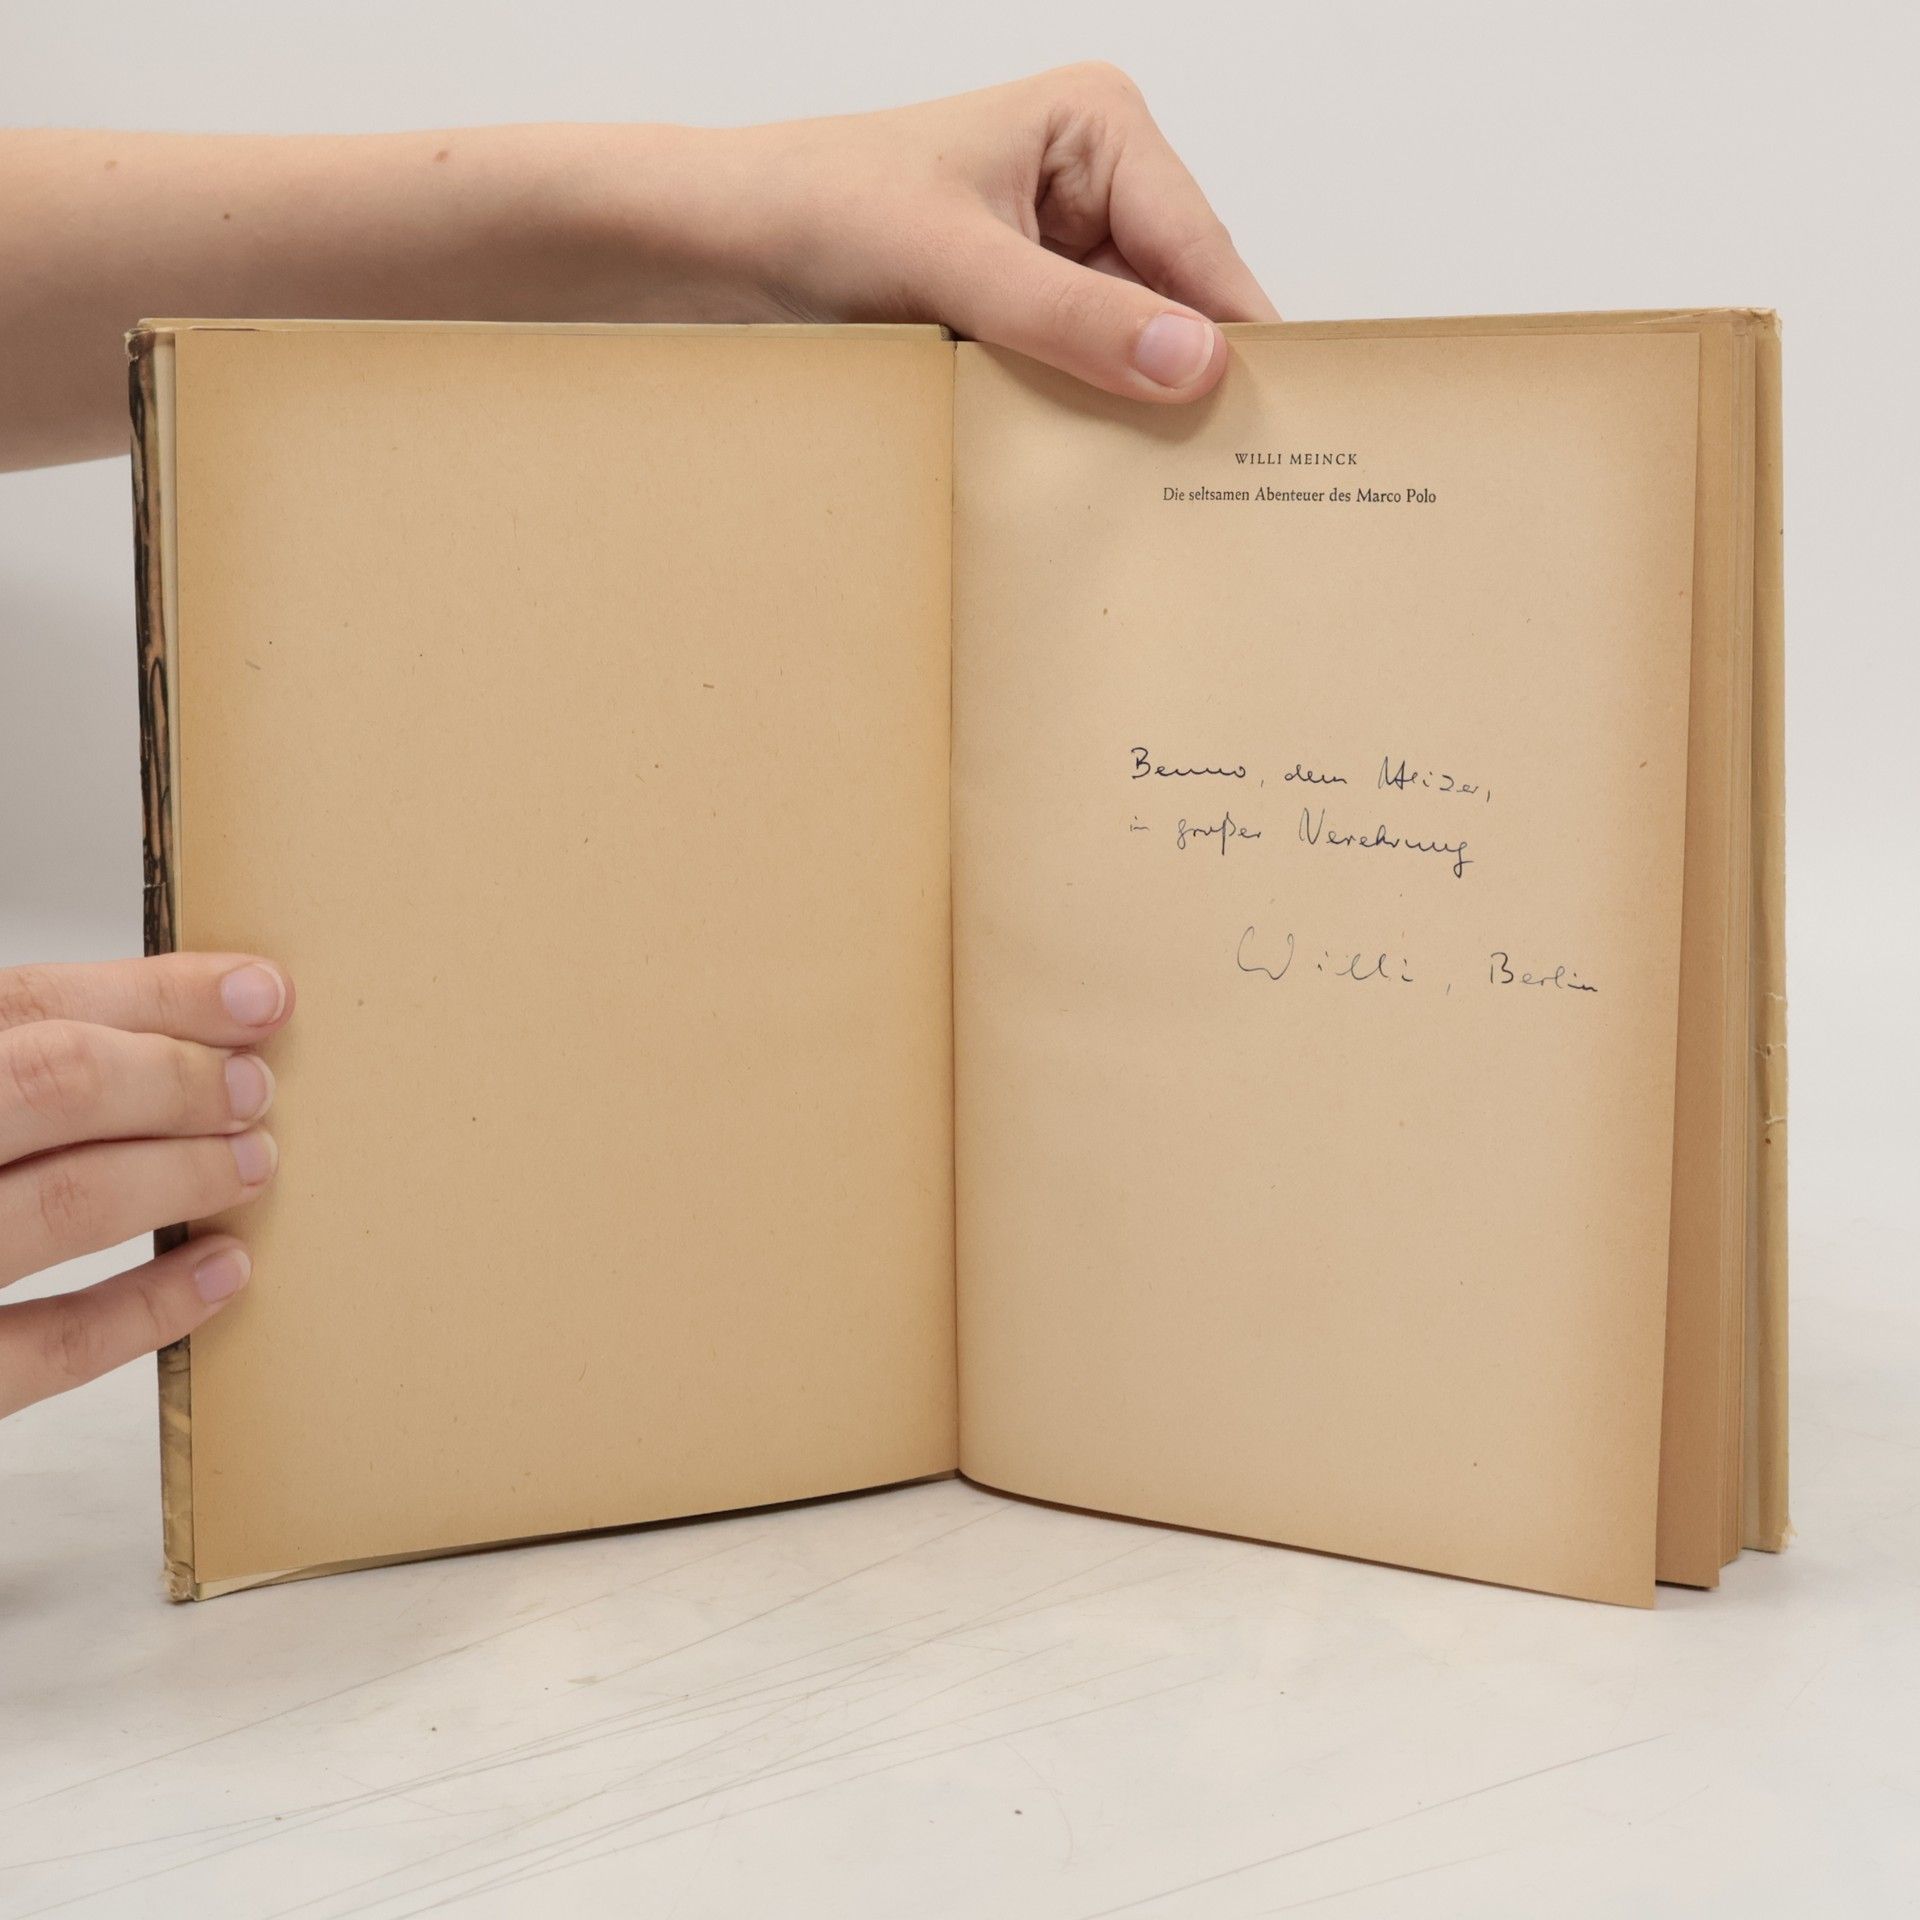 WILLI MEINCK
Die seltsamen Abenteuer des Marco Polo
Benno, dem Heizer,
in großer Verehrung
Willi, Berlin